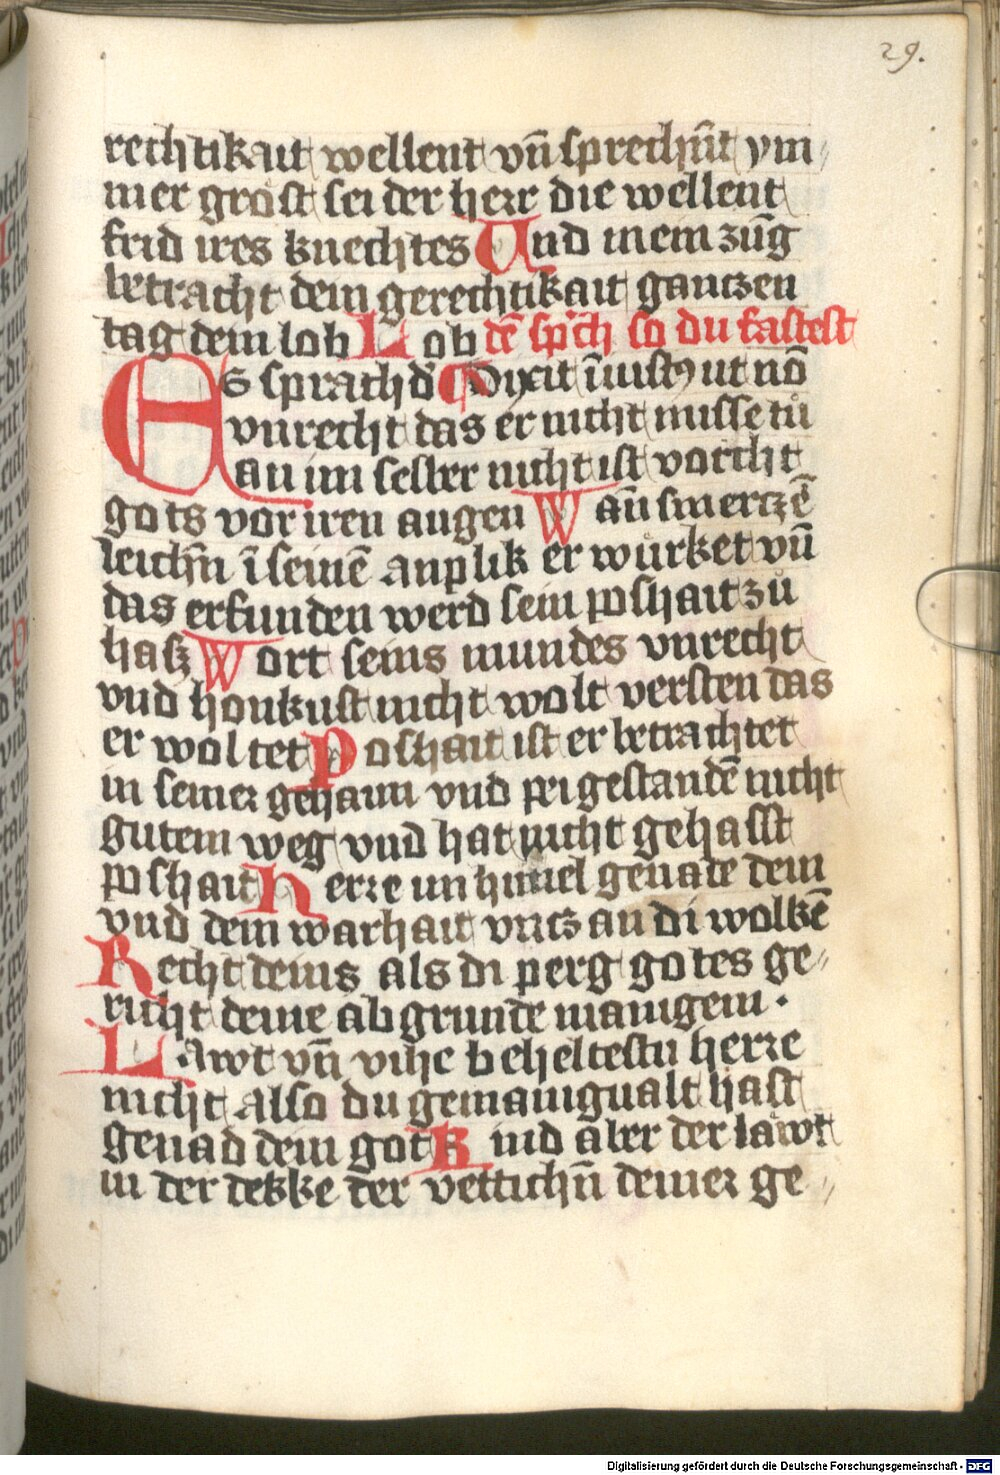 29.
rechtikait wellent vn̄ sprechn̄t ym„
mer gröst sei der herr die wellent
frid ires knechtes Und mein zūg
betracht dein gerechtikait gantzen
tag dein lob Lob dē sp̄ch so du fastest
ES sprach d̓ Dixit īiustꝰ ut nō
vnrecht das er nicht missetů
an im selber nicht ist vorcht
gots vor iren augen Wañ smerczē
leichn̄ ī seinē anplik er würket vn̄
das erfunden werd sein poshait zů
hasz Wort seins mundes vnrecht
vnd honkust nicht wolt versten das
er woltet Poshait ist er betrachtet
in seiner gehaim vnd pei gestandē nicht
gutem weg vnd hat nicht gehasst
poshait Herre im himel genade dein
vnd dein warhait vntz an di wolkē
Recht deins als di perg gotes ge„
richt deine abgrunde manigem ·
Läwt vn̄ vihe beheltestu herre
nicht also du gemanigualt hast
genad dein got Kind aber der läwt
in der dekke der vettichn̄ deiner ge„
Digitalisierung gefördert durch die Deutsche Forschungsgemeinschaft - DFG